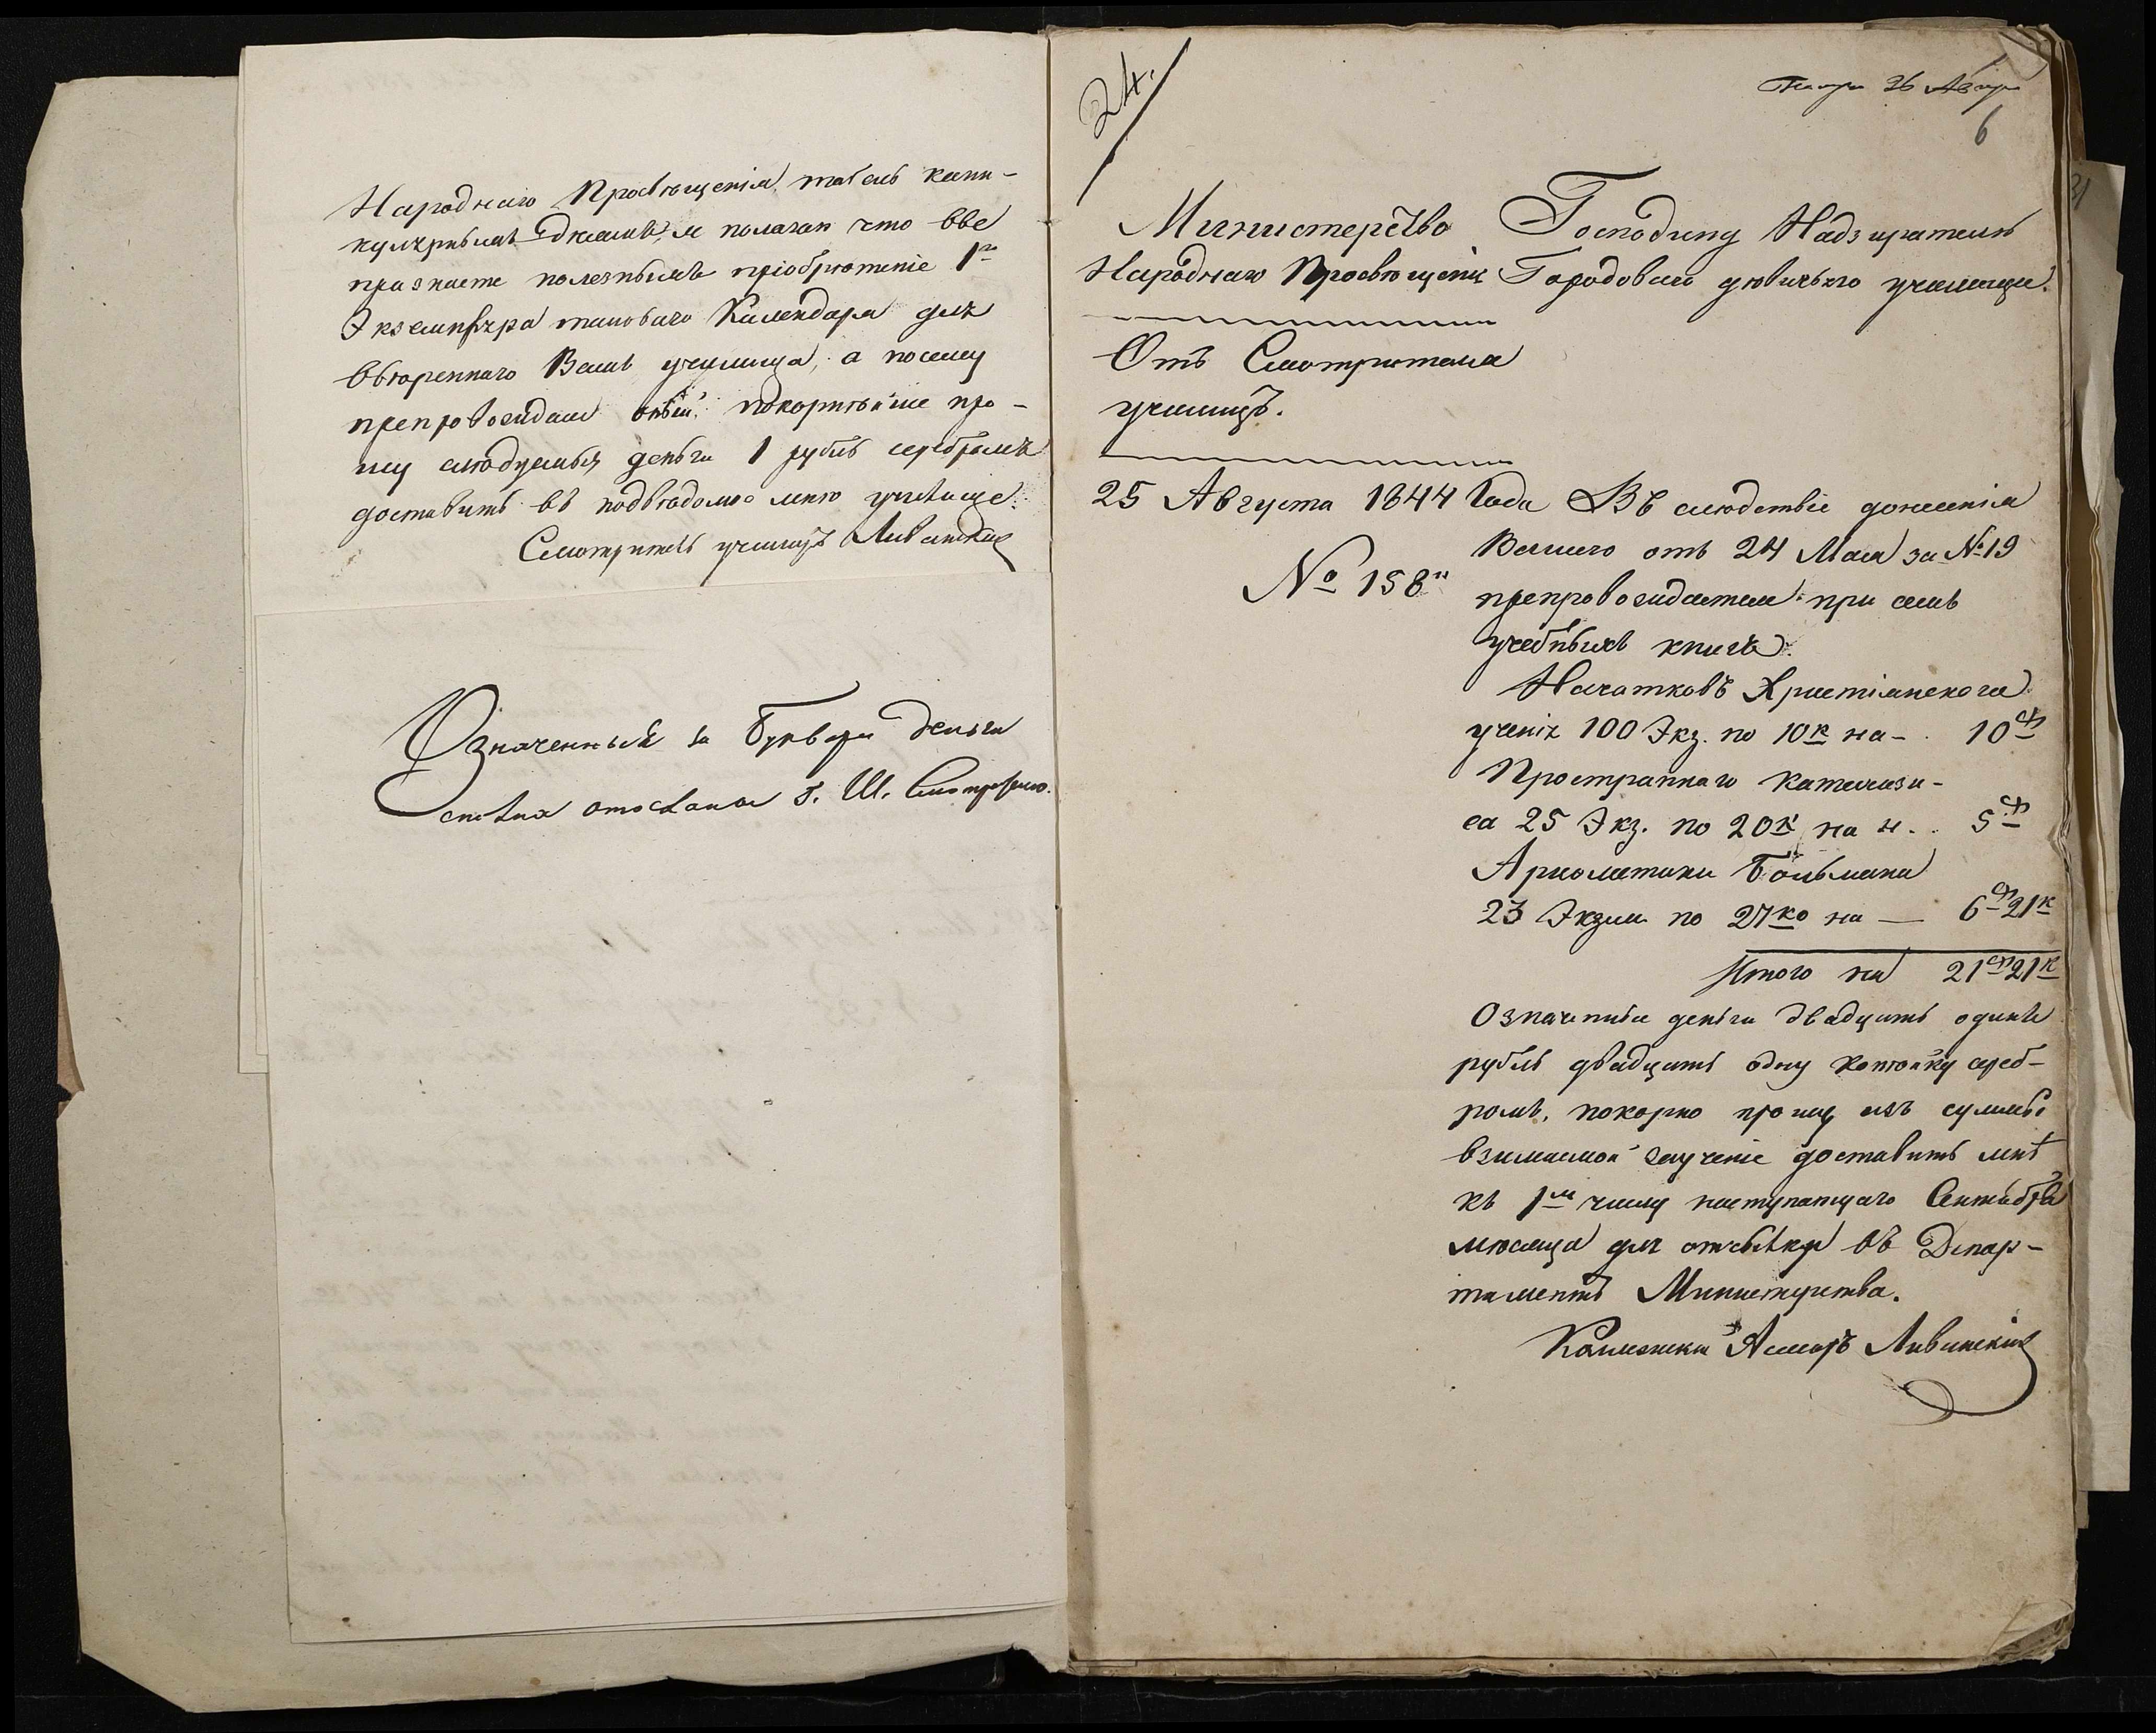 Народнаго Просвѣщенія, табель кани-
кулярнымъ днямъ, и полагая что Вы
признаете полезнымъ пріобрѣтеніе 1го
Экземпляра таковаго Календаря для
ввѣреннаго Вамъ училища, а посему
препровождая оный, покорнѣйше про-
шу слѣдуемыя деньги 1 рубль серебромъ
доставить въ подвѣдомое мнѣ училище.
Смотритель училищъ
Означенный за Буквари деньги
отосланы Г. Ш. Смотрителю.
24.
26 Августа
6
Министерство
Народнаго Просвѣщенія
Отъ Смотрителя
училищъ.
25 Августа 1844 Года
№ 158
Господину Надзирателю
Городоваго дѣвичьяго училища.
Въ слѣдствіе донесенія
Вашего отъ 24 Мая за № 19
препровождается при семъ
учебныхъ книгъ.
Начатковъ Христіанскаго
ученія 100 Экз. по 10к на - 10
Пространнаго Катихизи-
са 25 Экз. по 20к на 5
Ариѳметики
23 Экзем по 27ко на — 6 21к
Итого на 21 21к
Означенныя деньги двадцать одинъ
рубль двадцать одну копѣйку сереб-
ромъ, покорно прошу изъ суммы
взимаемой за ученіе доставить мнѣ
къ 1му числу наступающаго Сентября
мѣсяца для отсылки въ Депар-
таментъ Министерства.